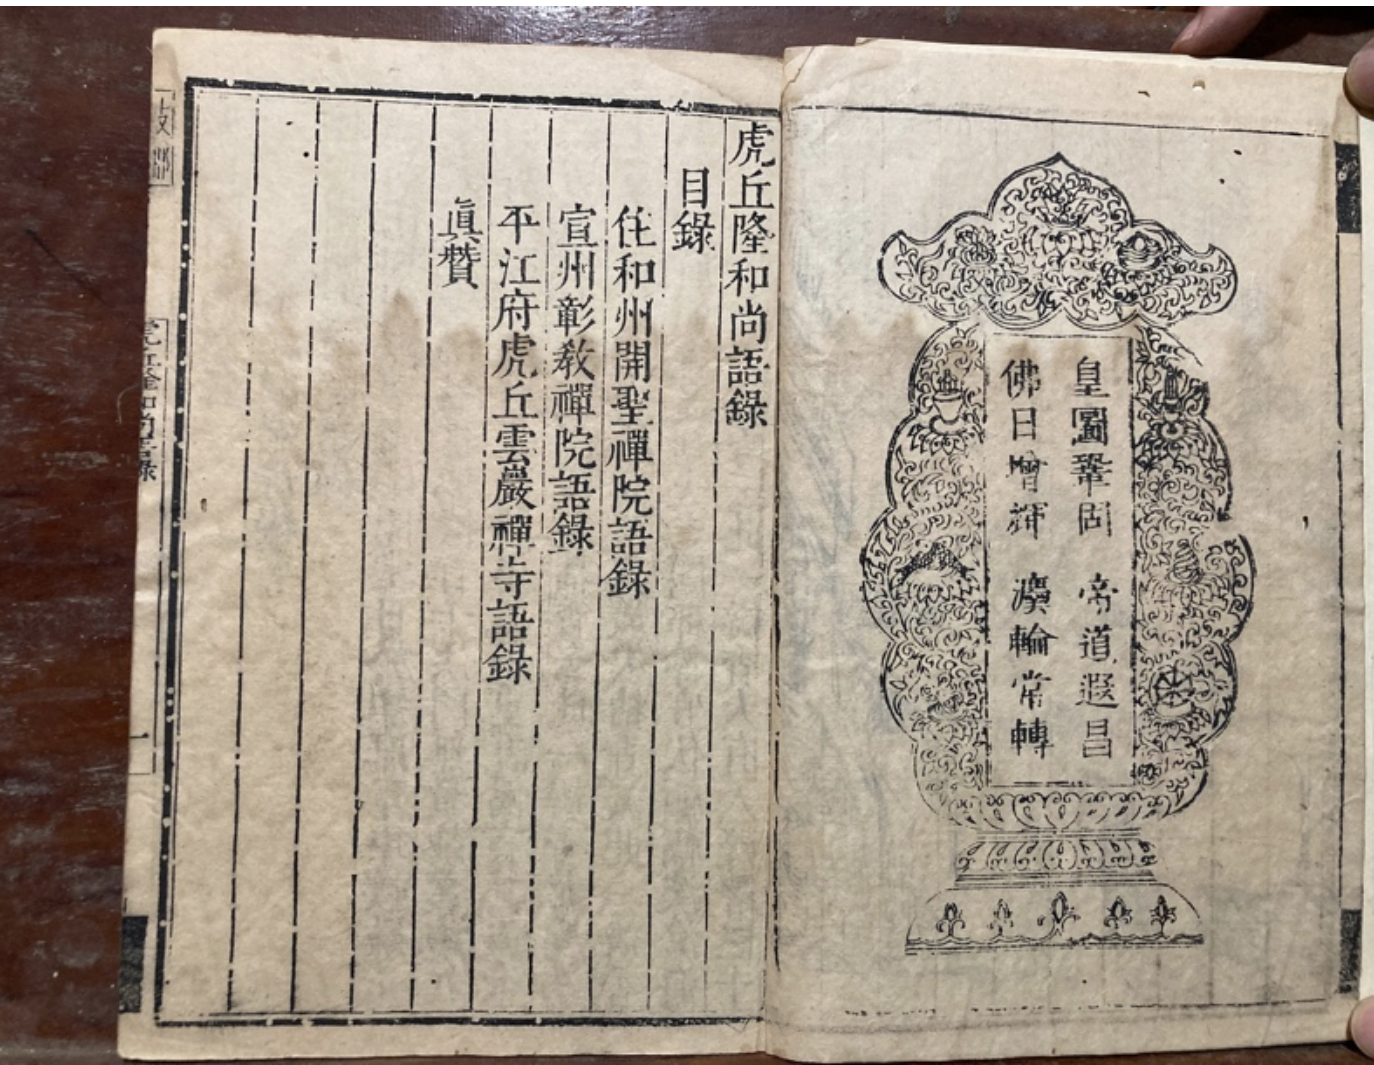 皇圖鞏固 帝道遐昌
佛日增輝 法輪常轉
虎丘隆和尚語錄
目錄
住和州開聖禪院語錄
宣州彰教禪院語錄
平江府虎丘雲巖禪寺語錄
眞贊
一